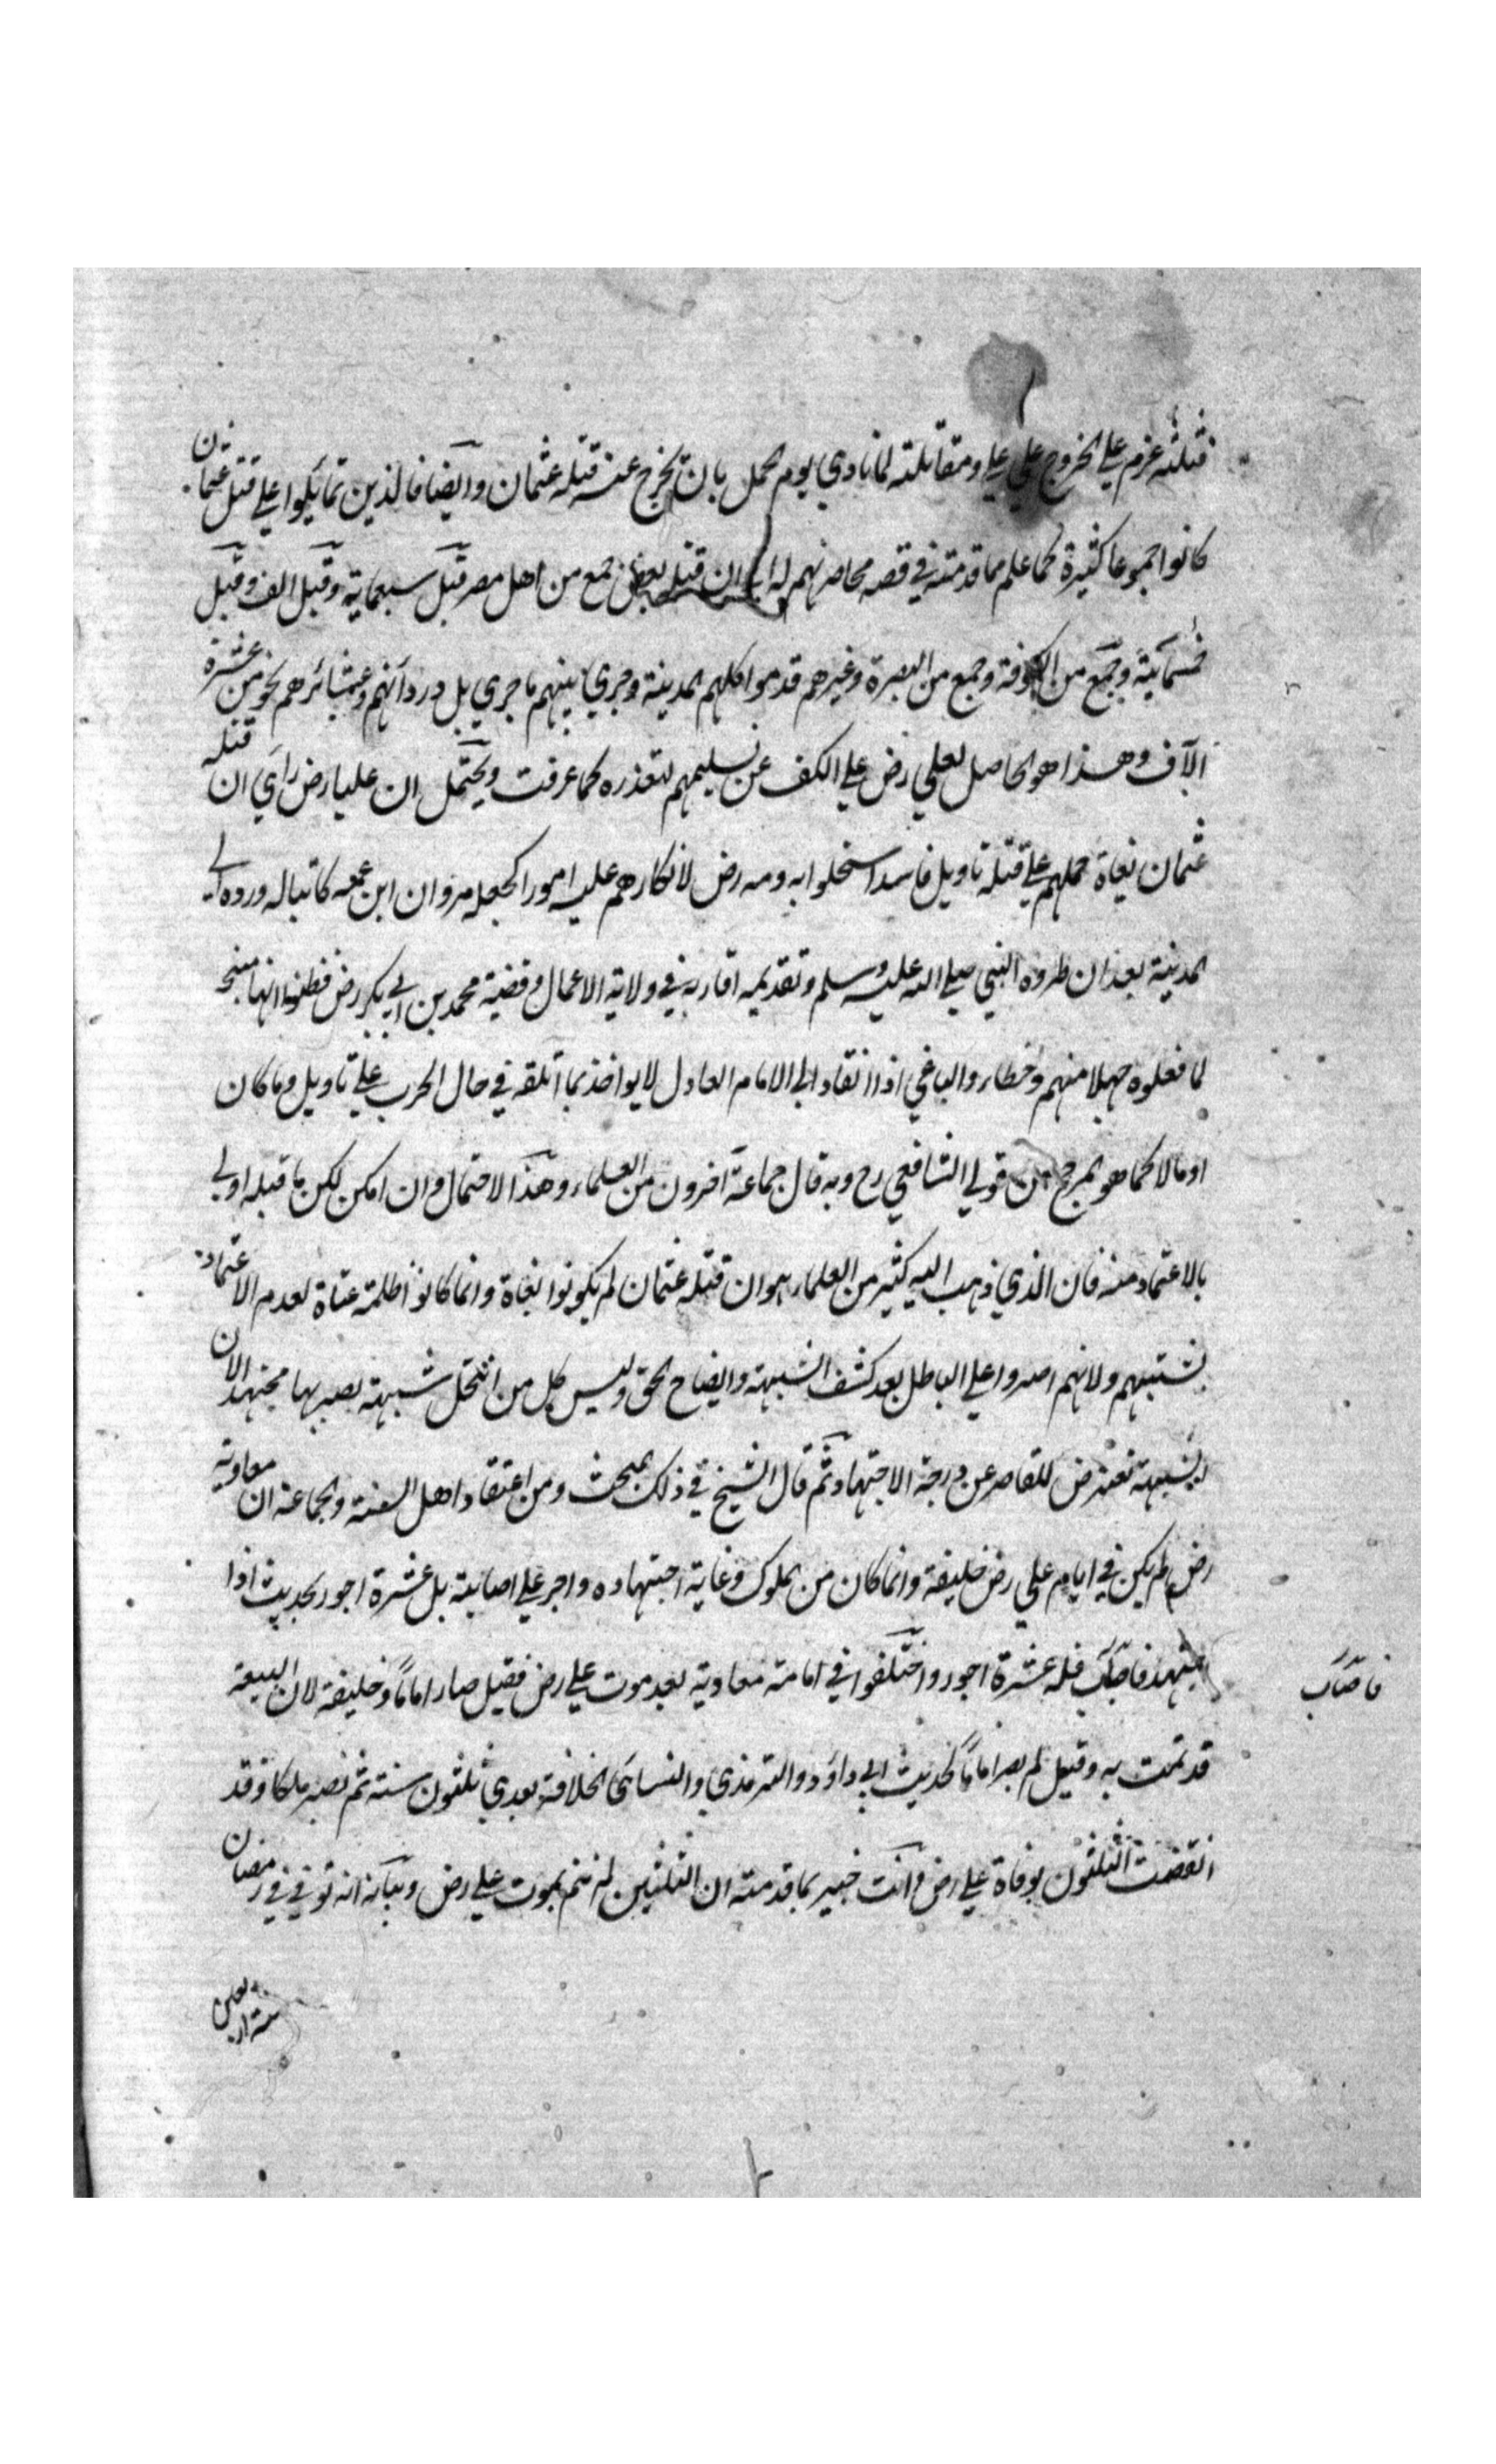 قتلته عزم علي الخروج علي علي ومقاتلته لما نادي يوم الجمل بان يخرج عنه قتله عثمان وايضا فالذين تمائلوا علي قتل عثمان
كانوا جموعا كثيرة كما علم مما قدمته في قصه محاصرتهم له ان قتله بعض جمع من اهل مصر قيل سبعماية وقيل الف وقيل
خمسمائية وجمع من الكوفة وجمع من البصرة وغيرهم قدموا كلهم المدينة وجري بينهم ما جري بل ورد انهم وعشائرهم نحو من عشرة
الآف وهذا هو الحاصل لعلي رض علي الكف عن تسليمهم لتعذره كما عرفت ويحتمل ان عليا رض راي ان قتله
عثمان بغاة حملهم علي قتله تاويل فاسد استحلوا به ومه رض لانكارهم عليه امورا كجعله مروان ابن عمه كاتبا له ورده الي
المدينة بعد ان طرده النبي صلي الله عليه وسلم وتقديمه اقاربه في ولاية الاعمال وقضية محمد بن ابي بكر رض فظنوا انها مبيحة
لما فعلوه جهلا منهم وخطاء والباغي اذا انقاد الي الامام العادل لا يواخذ بما اتلفه في حال الحرب علي تاويل وما كان
او مالا كما هو المرجح من قولي الشافعي رح وبه قال جماعة آخرون من العلماء وهذا الاحتمال وان امكن لكن ما قبله اولي
بالاعتماد منه فان الذي ذهب اليه كثير من العلماء هو ان قتله عثمان لم يكونوا بغاة وانما كانوا ظلمة عتاة لعدم الاعتماد
بشبههم ولانهم اصروا علي الباطل بعد كشف الشبهة وايضاح الحق وليس كل من انتحل شبهة يصير بها مجتهدا لان
الشبهة تعترض للقاصر عن درجة الاجتهاد وثم قال الشيخ في ذلك المبحث ومن اعتقاد اهل السنة والجماعة ان معاوية
رض لم يكن في ايام علي رض خليفة وانما كان من الملوك وغاية اجتهاده واجر علي اصابته بل عشرة اجور لحديث اذا
اجتهد فاصاب فله عشرة اجور واختلفوا في امامة معاوية بعد موت علي رض فقيل صار اماما وخليفة لان البيعة
فاصاب
قد تمت به وقيل لم يصر اماما لحديث ابي داؤد والترمذي والنسائي الخلافة بعدي ثلثون سنة ثم تصير ملكا وقد
انقضت الثلثون بوفاة علي رض وانت خبير بما قدمته ان الثلثين لم تتم بموت علي رض وبيانه انه توفي في رمضان
سنة اربعين